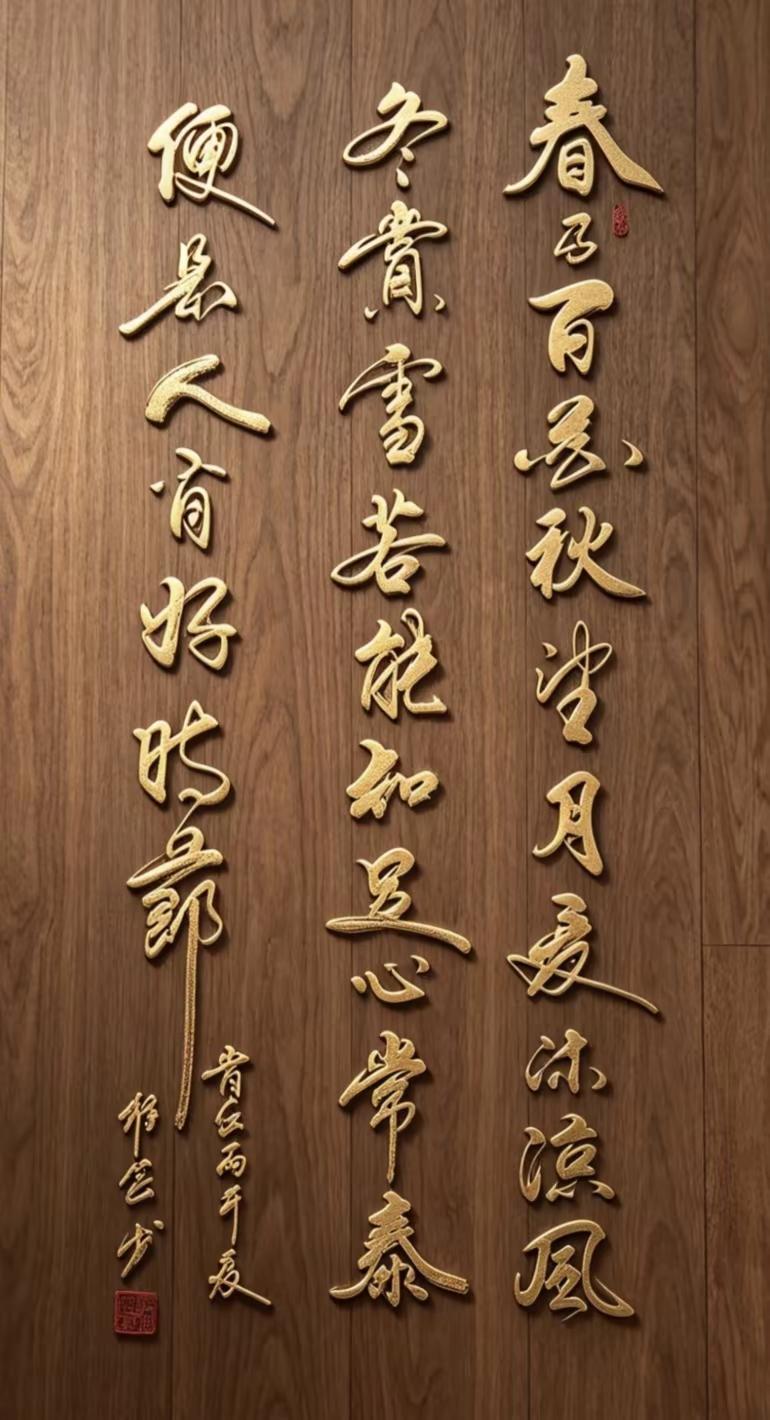 春百花秋望月夏沐凉風
冬賞雪若能知足心常泰
便是人間好時節
歲次丙午夏
书